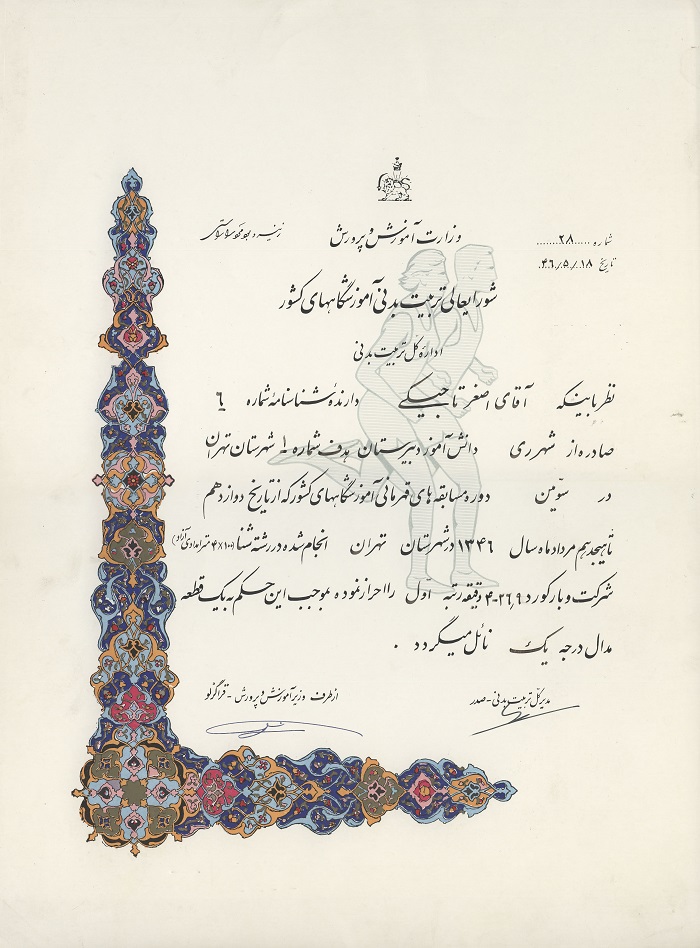 شماره ..... ۲۸ .......
تاریخ ۴۶/۵/۱۸
وزارت آموزش و پرورش
شورایعالی تربیت بدنی آموزشگاههای کشور
اداره کل تربیت بدنی
نظر باینکه آقای اصغر تاجیکی دارنده شناسنامه شماره ۶
صادره از شهرری دانش آموز دبیرستان هدف شماره ۱ شهرستان تهران
در سوّمین دوره مسابقه های قهرمانی آموزشگاههای کشور که از تاریخ دوازدهم
تا هیجدهم مرداد ماه سال ۱۳۴۶ در شهرستان تهران انجام شده در رشته شنا (۴×۱۰۰ متر امدادی آزاد)
شرکت و با رکورد ۴-۲۶٫۹ دقیقه رتبه اول را احراز نموده بموجب این حکم به یک قطعه
مدال درجه یک نائل میگردد .
مدیر کل تربیت بدنی - صدر
از طرف وزیر آموزش و پرورش - قراگزلو